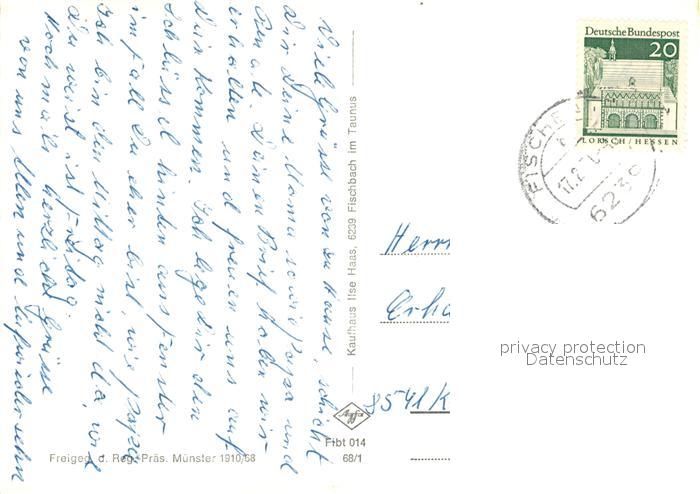 Viele Grüsse von zu Hause, schickt
Dir Deine Mama sowie Papa und
Oma. Deinen Brief haben wir
erhalten und freuen uns auf
Dein kommen. Ich lege Dir den
Schlüssel hinden ans Fenster
im fall Du eher bist, wie Papa
Ich bin den Mittag nicht da, weil
Du weist ist Freitag.
Noch mals herzliche Grüsse
von uns Allen und aufwiedersehn
Kaufhaus Ilse Haas, 6239 Fischbach im Taunus
Agfa
Fibt 014
68/1
Freigeg. d. Reg.-Präs. Münster 1910/68
Deutsche Bundespost
20
LORSCH/HESSEN
FISCHB
17.2
6239
Herrn
Erha
8541 K
privacy protection
Datenschutz